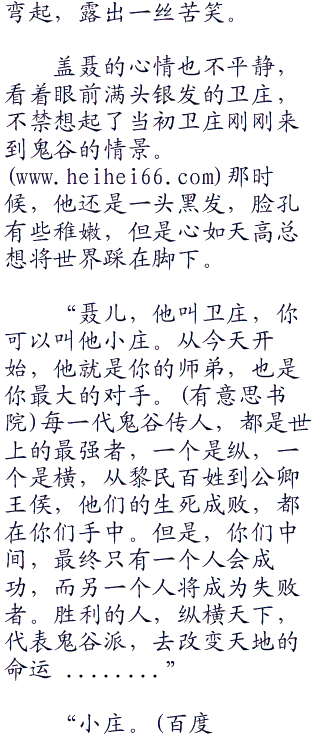 弯起，露出一丝苦笑。
盖聂的心情也不平静，
看着眼前满头银发的卫庄，
不禁想起了当初卫庄刚刚来
到鬼谷的情景。
(www.heihei66.com)那时
候，他还是一头黑发，脸孔
有些稚嫩，但是心如天高总
想将世界踩在脚下。
“聂儿，他叫卫庄，你
可以叫他小庄。从今天开
始，他就是你的师弟，也是
你最大的对手。(有意思书
院)每一代鬼谷传人，都是世
上的最强者，一个是纵，一
个是横，从黎民百姓到公卿
王侯，他们的生死成败，都
在你们手中。但是，你们中
间，最终只有一个人会成
功，而另一个人将成为失败
者。胜利的人，纵横天下，
代表鬼谷派，去改变天地的
命运 ........”
“小庄。(百度